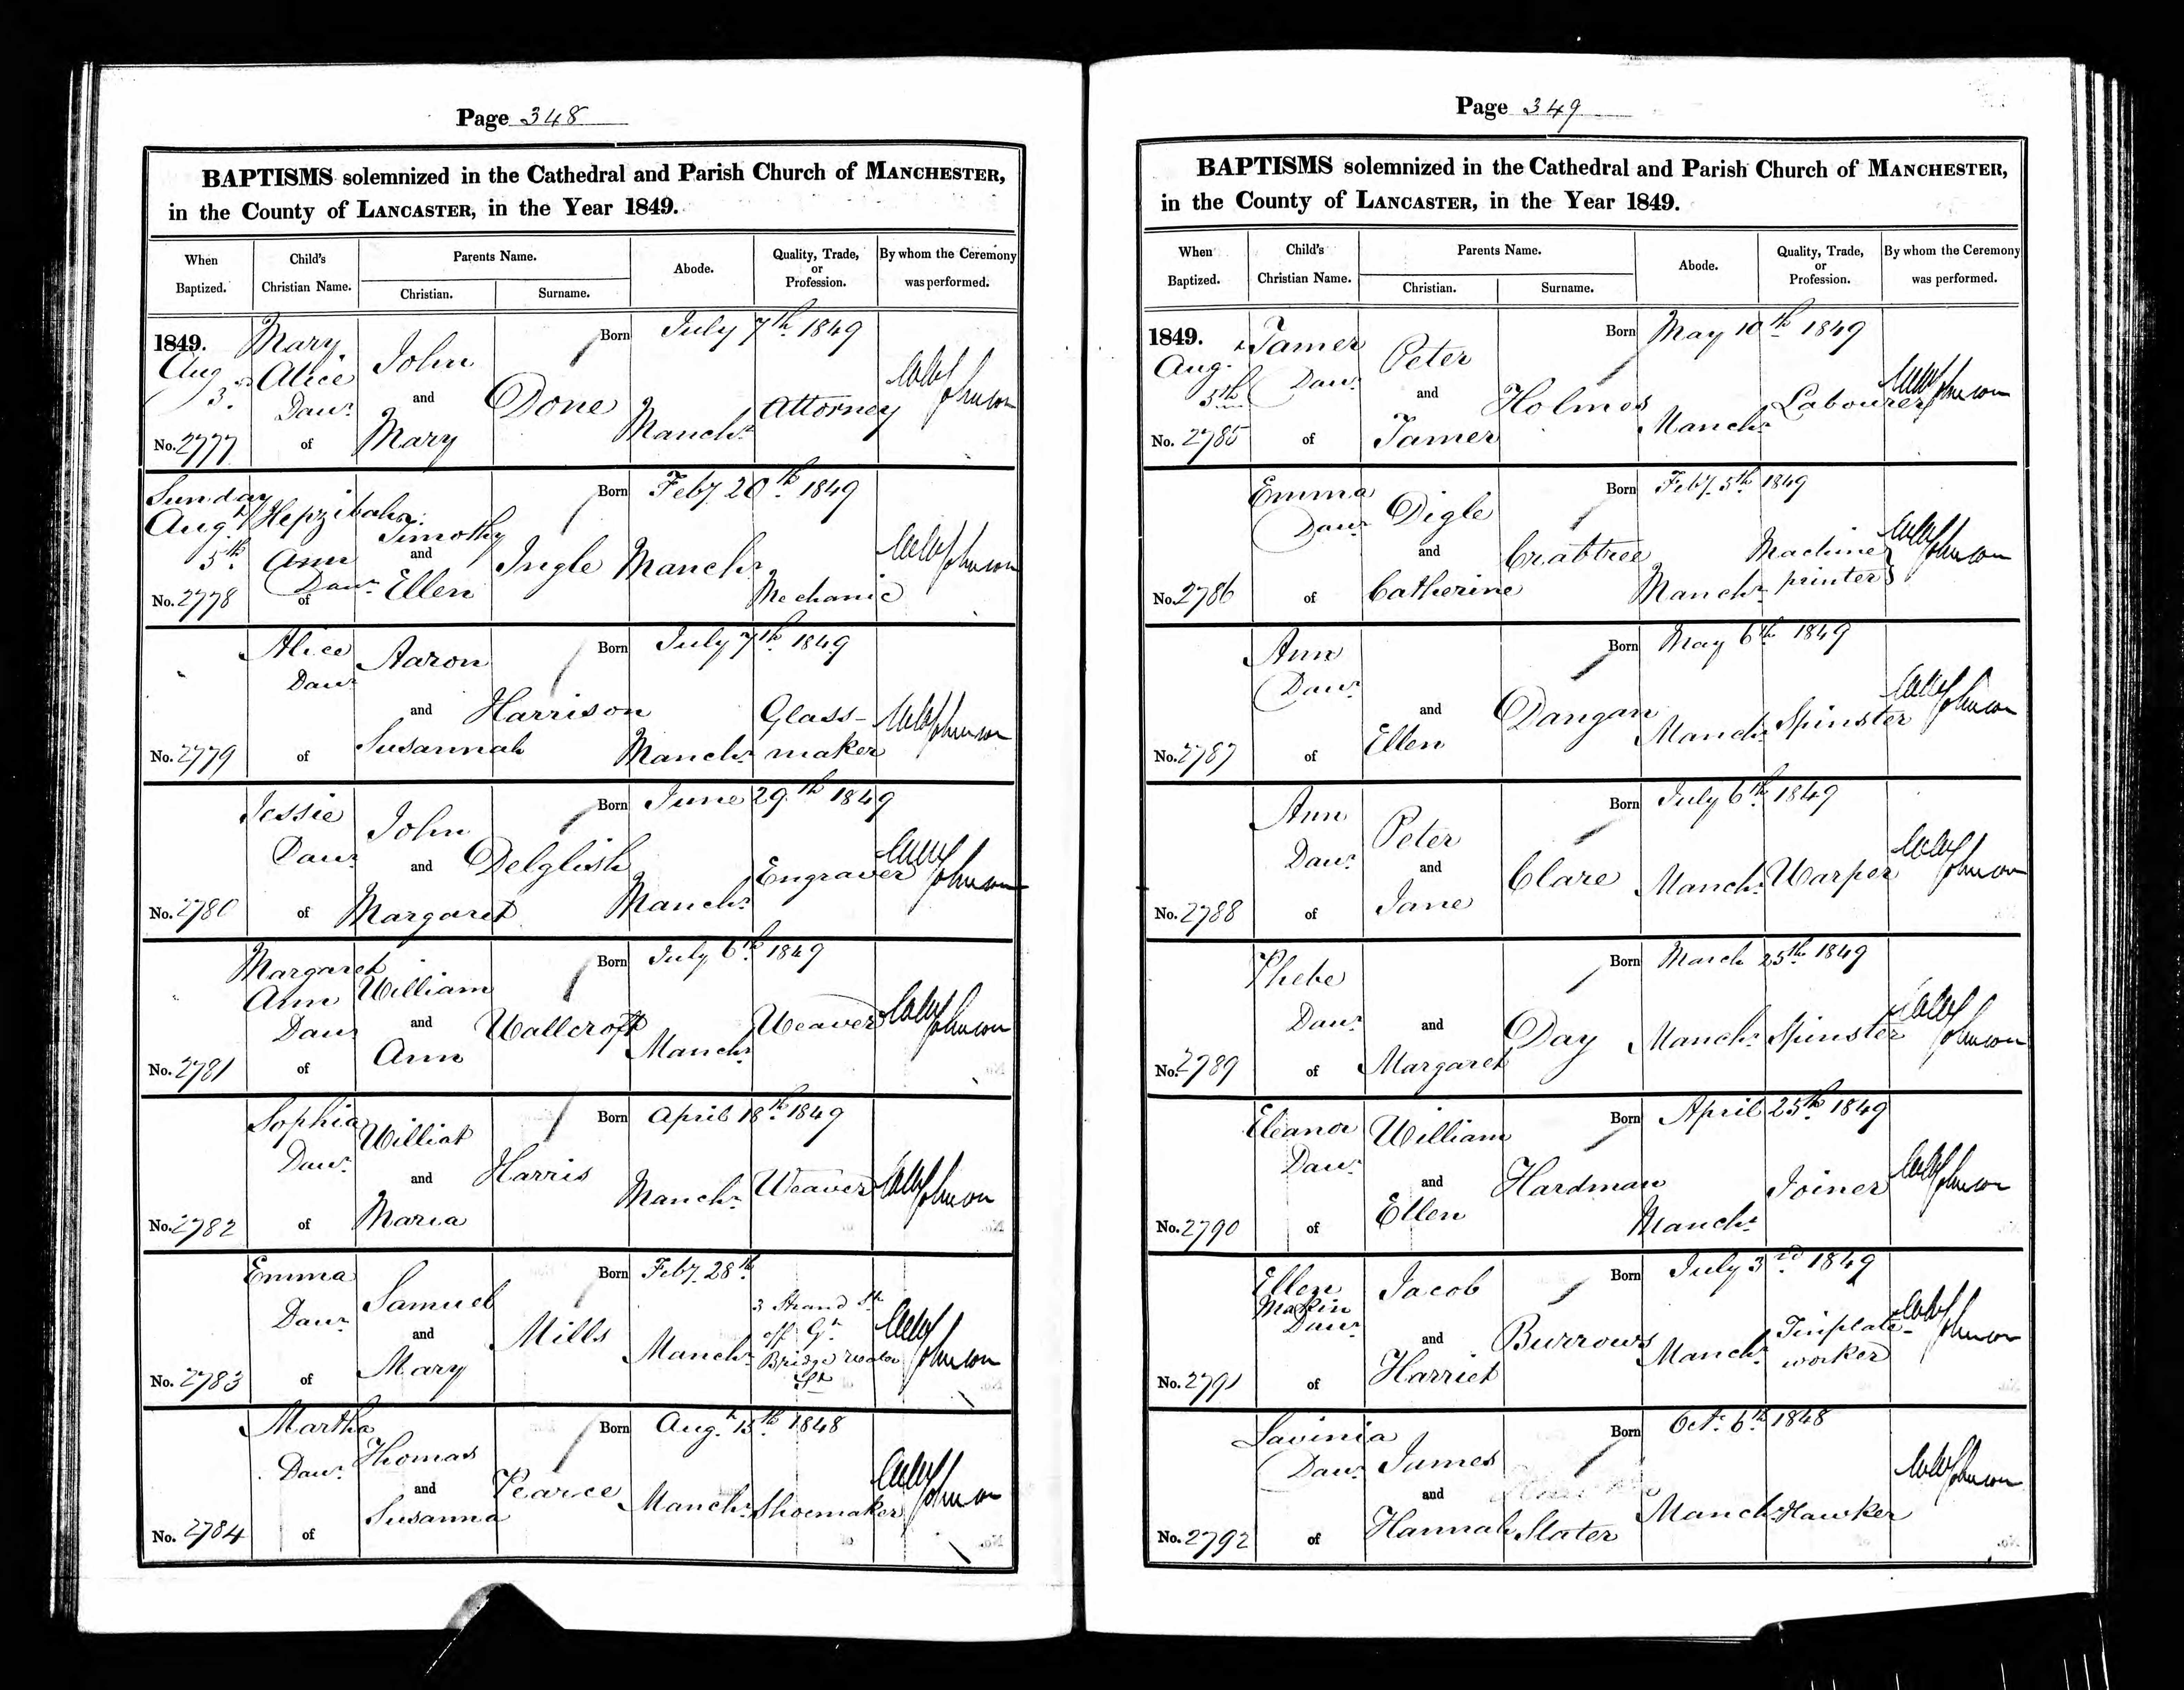 Page 348
BAPTISMS solemnized in the Cathedral and Parish Church of MANCHESTER,
in the County of LANCASTER, in the Year 1849.
When Baptized. Child's Christian Name. Parents Name. Christian. Surname. Abode. Quality, Trade, or Profession. By whom the Ceremony was performed.
1849. Mary Born July 7th. 1849
Aug 3. Alice John
Daur. and Done Manchr. Attorney Johnson
No. 2777 of Mary
Sunday Born Feby. 20th. 1849
Augt. Hepzibah Timothy
5th. Ann and Ingle Manchr. Johnson
Daur. Ellen Mechanic
No. 2778 of
Alice Aaron Born July 7th. 1849
Daur.
and Harrison Glass- Johnson
No. 2779 of Susannah Manchr. maker
Jessie John Born June 29th. 1849
Daur. and Delglish Engraver Johnson
No. 2780 of Margaret Manchr.
Margaret Born July 6th. 1849
Ann William
Daur. and Wallcroft Weaver Johnson
Ann Manchr.
No. 2781 of
Sophia Williat Born April 18th. 1849
Daur. and Harris Manchr. Weaver Johnson
No. 2782 of Maria
Emma Samuel Born Feby. 28th.
Daur. 3 Strand St.
and Mills Manchr. off Gt. Johnson
Mary Bridgewater
No. 2783 of St
Martha Born Augt. 15th. 1848
Daur. Thomas
and Pearce Manchr. Shoemaker Johnson
Susanna
No. 2784 of
Page 349
BAPTISMS solemnized in the Cathedral and Parish Church of MANCHESTER,
in the County of LANCASTER, in the Year 1849.
When Baptized. Child's Christian Name. Parents Name. Christian. Surname. Abode. Quality, Trade, or Profession. By whom the Ceremony was performed.
1849. Tamer Born May 10th. 1849
Aug. Daur. Peter
5th and Holmes Labourer Johnson
No. 2785 of Tamer Manchr.
Emma Born Feby. 5th. 1849
Daur. Digle
and Crabtree Machine Johnson
No. 2786 of Catherine Manchr. printer
Ann Born May 6th. 1849
Daur.
and Dangan Manchr. Spinster Johnson
No. 2787 of Ellen
Ann Born July 6th. 1849
Daur. Peter
and Clare Manchr. Warper Johnson
No. 2788 of Jane
Phebe Born March 25th. 1849
Daur. and Day Manchr. Spinster Johnson
No. 2789 of Margaret
Eleanor William Born April 25th. 1849
Daur.
and Hardman Joiner Johnson
No. 2790 of Ellen Manchr.
Ellen Jacob Born July 3rd. 1849
Makin
Daur. and Burrows Manchr. Tinplate- Johnson
Harriet worker
No. 2791 of
Lavinia Born Oct. 6th. 1848
Daur. James
and Johnson
No. 2792 of Hannah Slater Manchr. Hawker